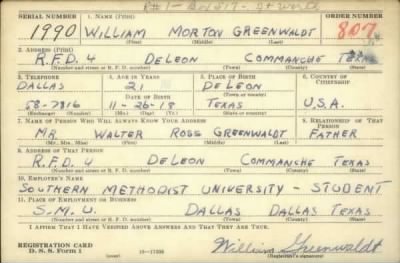 R#1 - Box 517 - Ft Worth
SERIAL NUMBER 1. NAME (Print) ORDER NUMBER
1990 WILLIAM MORTON GREENWALDT 807
(First) (Middle) (Last)
2. ADDRESS (Print)
R.F.D. 4 DELEON COMMANCHE TEXAS
(Number and street or R. F. D. number) (Town) (County) (State)
3. TELEPHONE 4. AGE IN YEARS 5. PLACE OF BIRTH 6. COUNTRY OF CITIZENSHIP
DALLAS 21 DELEON
DATE OF BIRTH (Town or county)
58-7816 11-26-18 TEXAS U.S.A.
(Exchange) (Number) (Mo.) (Day) (Yr.) (State or country)
7. NAME OF PERSON WHO WILL ALWAYS KNOW YOUR ADDRESS 8. RELATIONSHIP OF THAT PERSON
MR. WALTER ROSS GREENWALDT FATHER
(Mr., Mrs., Miss) (First) (Middle) (Last)
9. ADDRESS OF THAT PERSON
R.F.D. 4 DELEON COMMANCHE TEXAS
(Number and street or R. F. D. number) (Town) (County) (State)
10. EMPLOYER'S NAME
SOUTHERN METHODIST UNIVERSITY - STUDENT
11. PLACE OF EMPLOYMENT OR BUSINESS
S.M.U. DALLAS DALLAS TEXAS
(Number and street or R. F. D. number) (Town) (County) (State)
I AFFIRM THAT I HAVE VERIFIED ABOVE ANSWERS AND THAT THEY ARE TRUE.
REGISTRATION CARD
D. S. S. Form 1 16-17105 William Greenwaldt
(Registrant's signature)